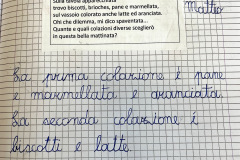 Sulla tavola apparecchiata
trovo biscotti, brioches, pane e marmellata,
sul vassoio colorato anche latte ed aranciata.
Ohi che dilemma, mi dico spaventata...
Quante e quali colazioni diverse sceglierò
in questa bella mattinata?
Mattio
La prima colazione è pane
e marmellata e aranciata.
La seconda colazione è
biscotti e latte.